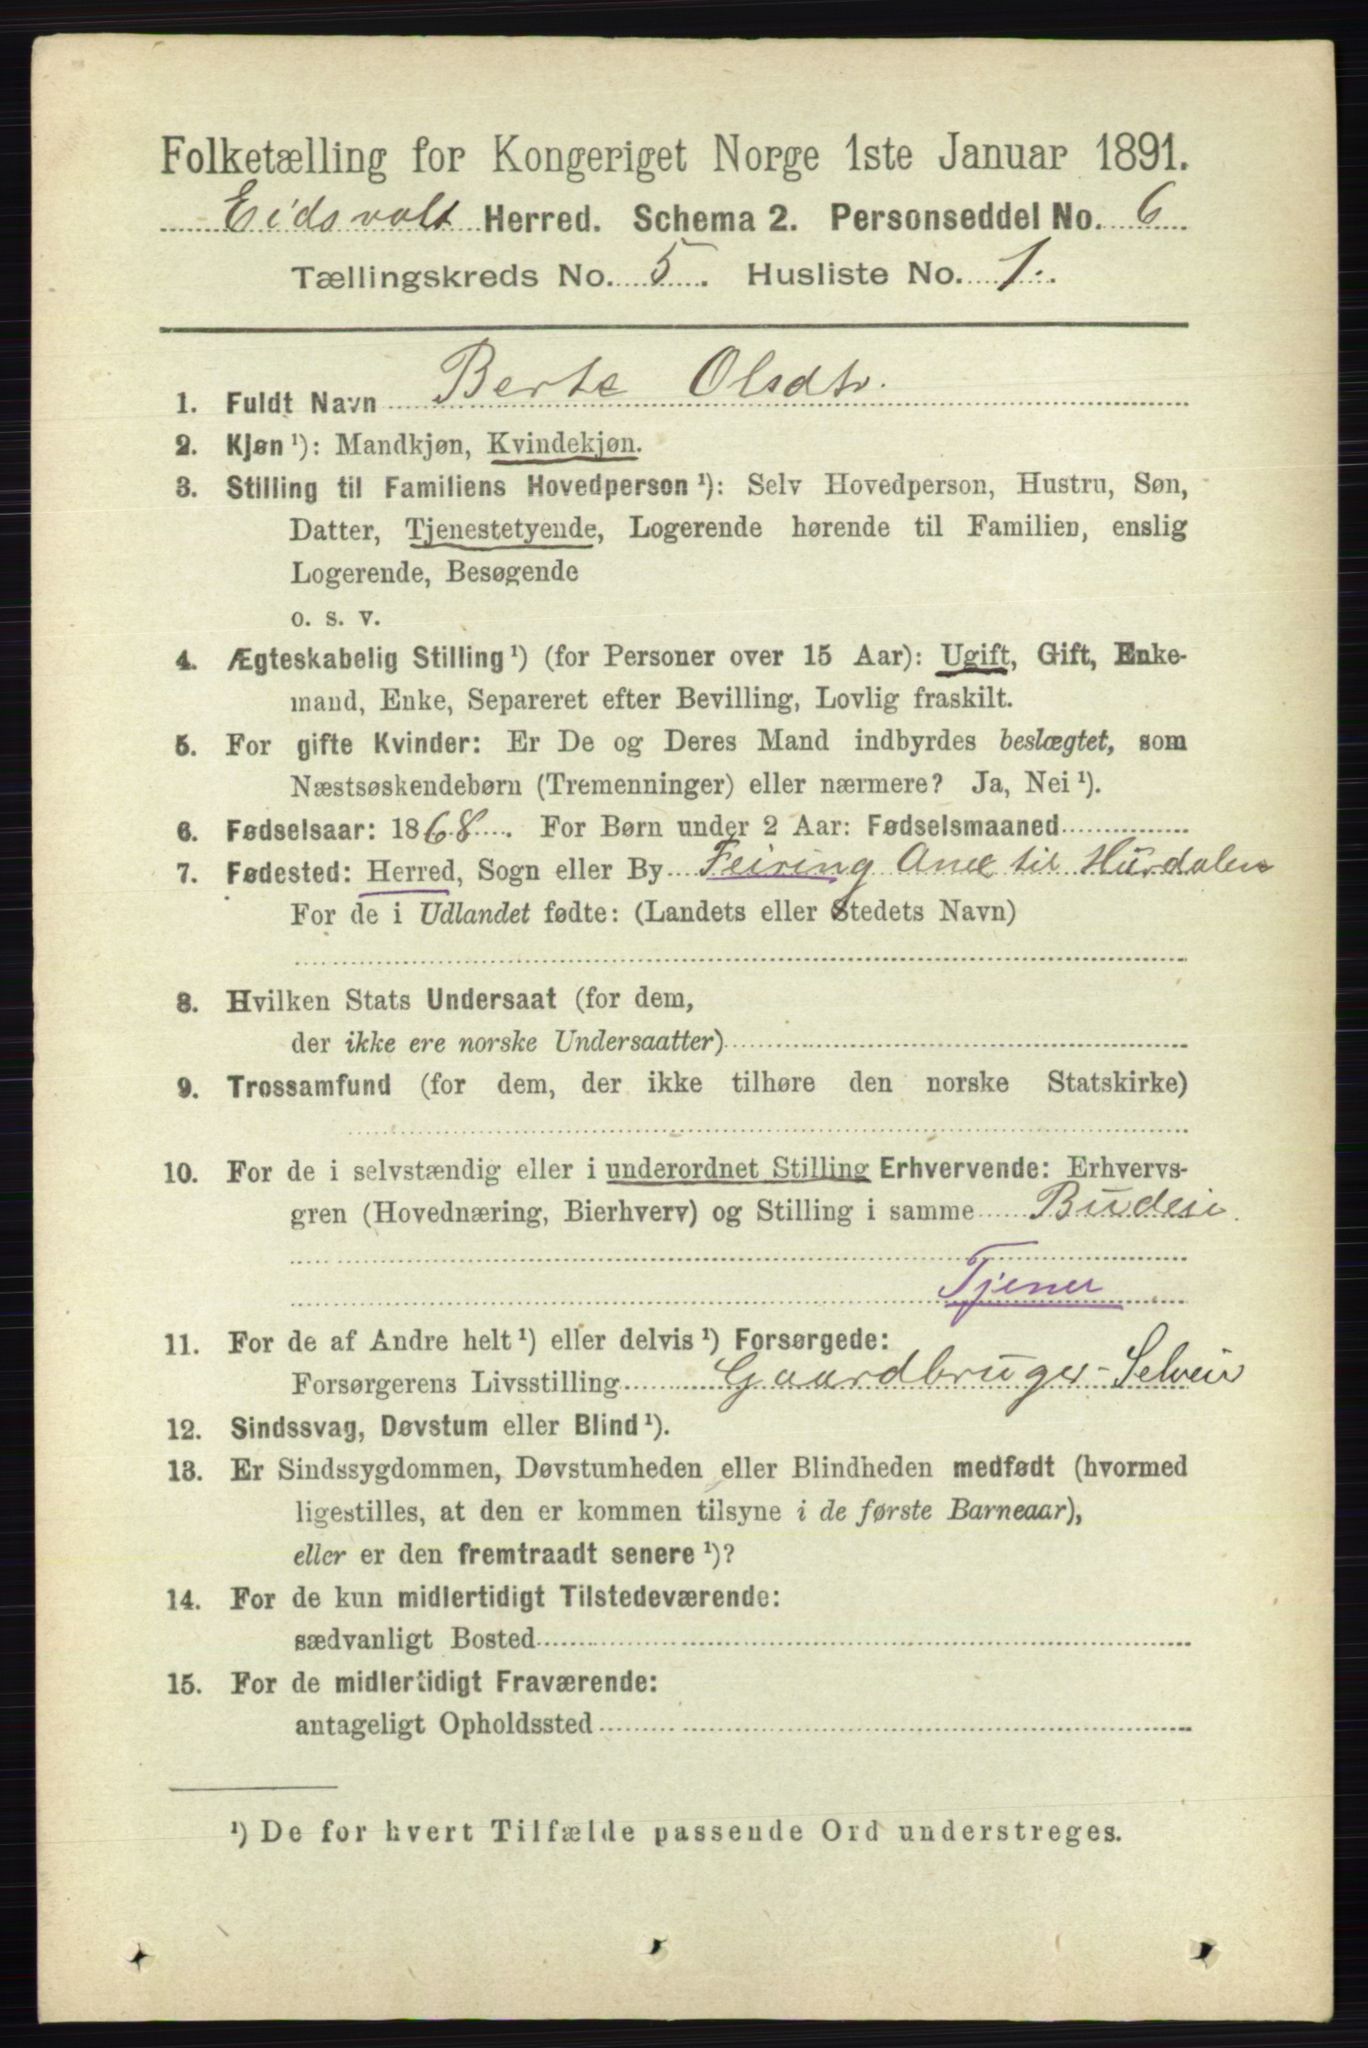 Folketælling for Kongeriget Norge 1ste Januar 1891.
Eidsvold Herred. Schema 2. Personseddel No. 6
Tællingskreds No. 5. Husliste No. 1.
1. Fuldt Navn Berte Olsdtr.
2. Kjøn ¹): Mandkjøn, Kvindekjøn.
3. Stilling til Familiens Hovedperson ¹): Selv Hovedperson, Hustru, Søn,
Datter, Tjenestetyende, Logerende hørende til Familien, enslig
Logerende, Besøgende
o. s. v.
4. Ægteskabelig Stilling ¹) (for Personer over 15 Aar): Ugift, Gift, Enke-
mand, Enke, Separeret efter Bevilling, Lovlig fraskilt.
5. For gifte Kvinder: Er De og Deres Mand indbyrdes beslægtet, som
Næstsøskendebørn (Tremenninger) eller nærmere? Ja, Nei ¹).
6. Fødselsaar: 1868. For Børn under 2 Aar: Fødselsmaaned
7. Fødested: Herred, Sogn eller By Feiring Anex til Hurdalen
For de i Udlandet fødte: (Landets eller Stedets Navn)
8. Hvilken Stats Undersaat (for dem,
der ikke ere norske Undersaatter)
9. Trossamfund (for dem, der ikke tilhøre den norske Statskirke)
10. For de i selvstændig eller i underordnet Stilling Erhvervende: Erhvervs-
gren (Hovednæring, Bierhverv) og Stilling i samme Budeie
Tjener
11. For de af Andre helt ¹) eller delvis ¹) Forsørgede:
Forsørgerens Livsstilling Gaardbruger-Selveier
12. Sindssvag, Døvstum eller Blind ¹).
13. Er Sindssygdommen, Døvstumheden eller Blindheden medfødt (hvormed
ligestilles, at den er kommen tilsyne i de første Barneaar),
eller er den fremtraadt senere ¹)?
14. For de kun midlertidigt Tilstedeværende:
sædvanligt Bosted
15. For de midlertidigt Fraværende:
antageligt Opholdssted
¹) De for hvert Tilfælde passende Ord understreges.